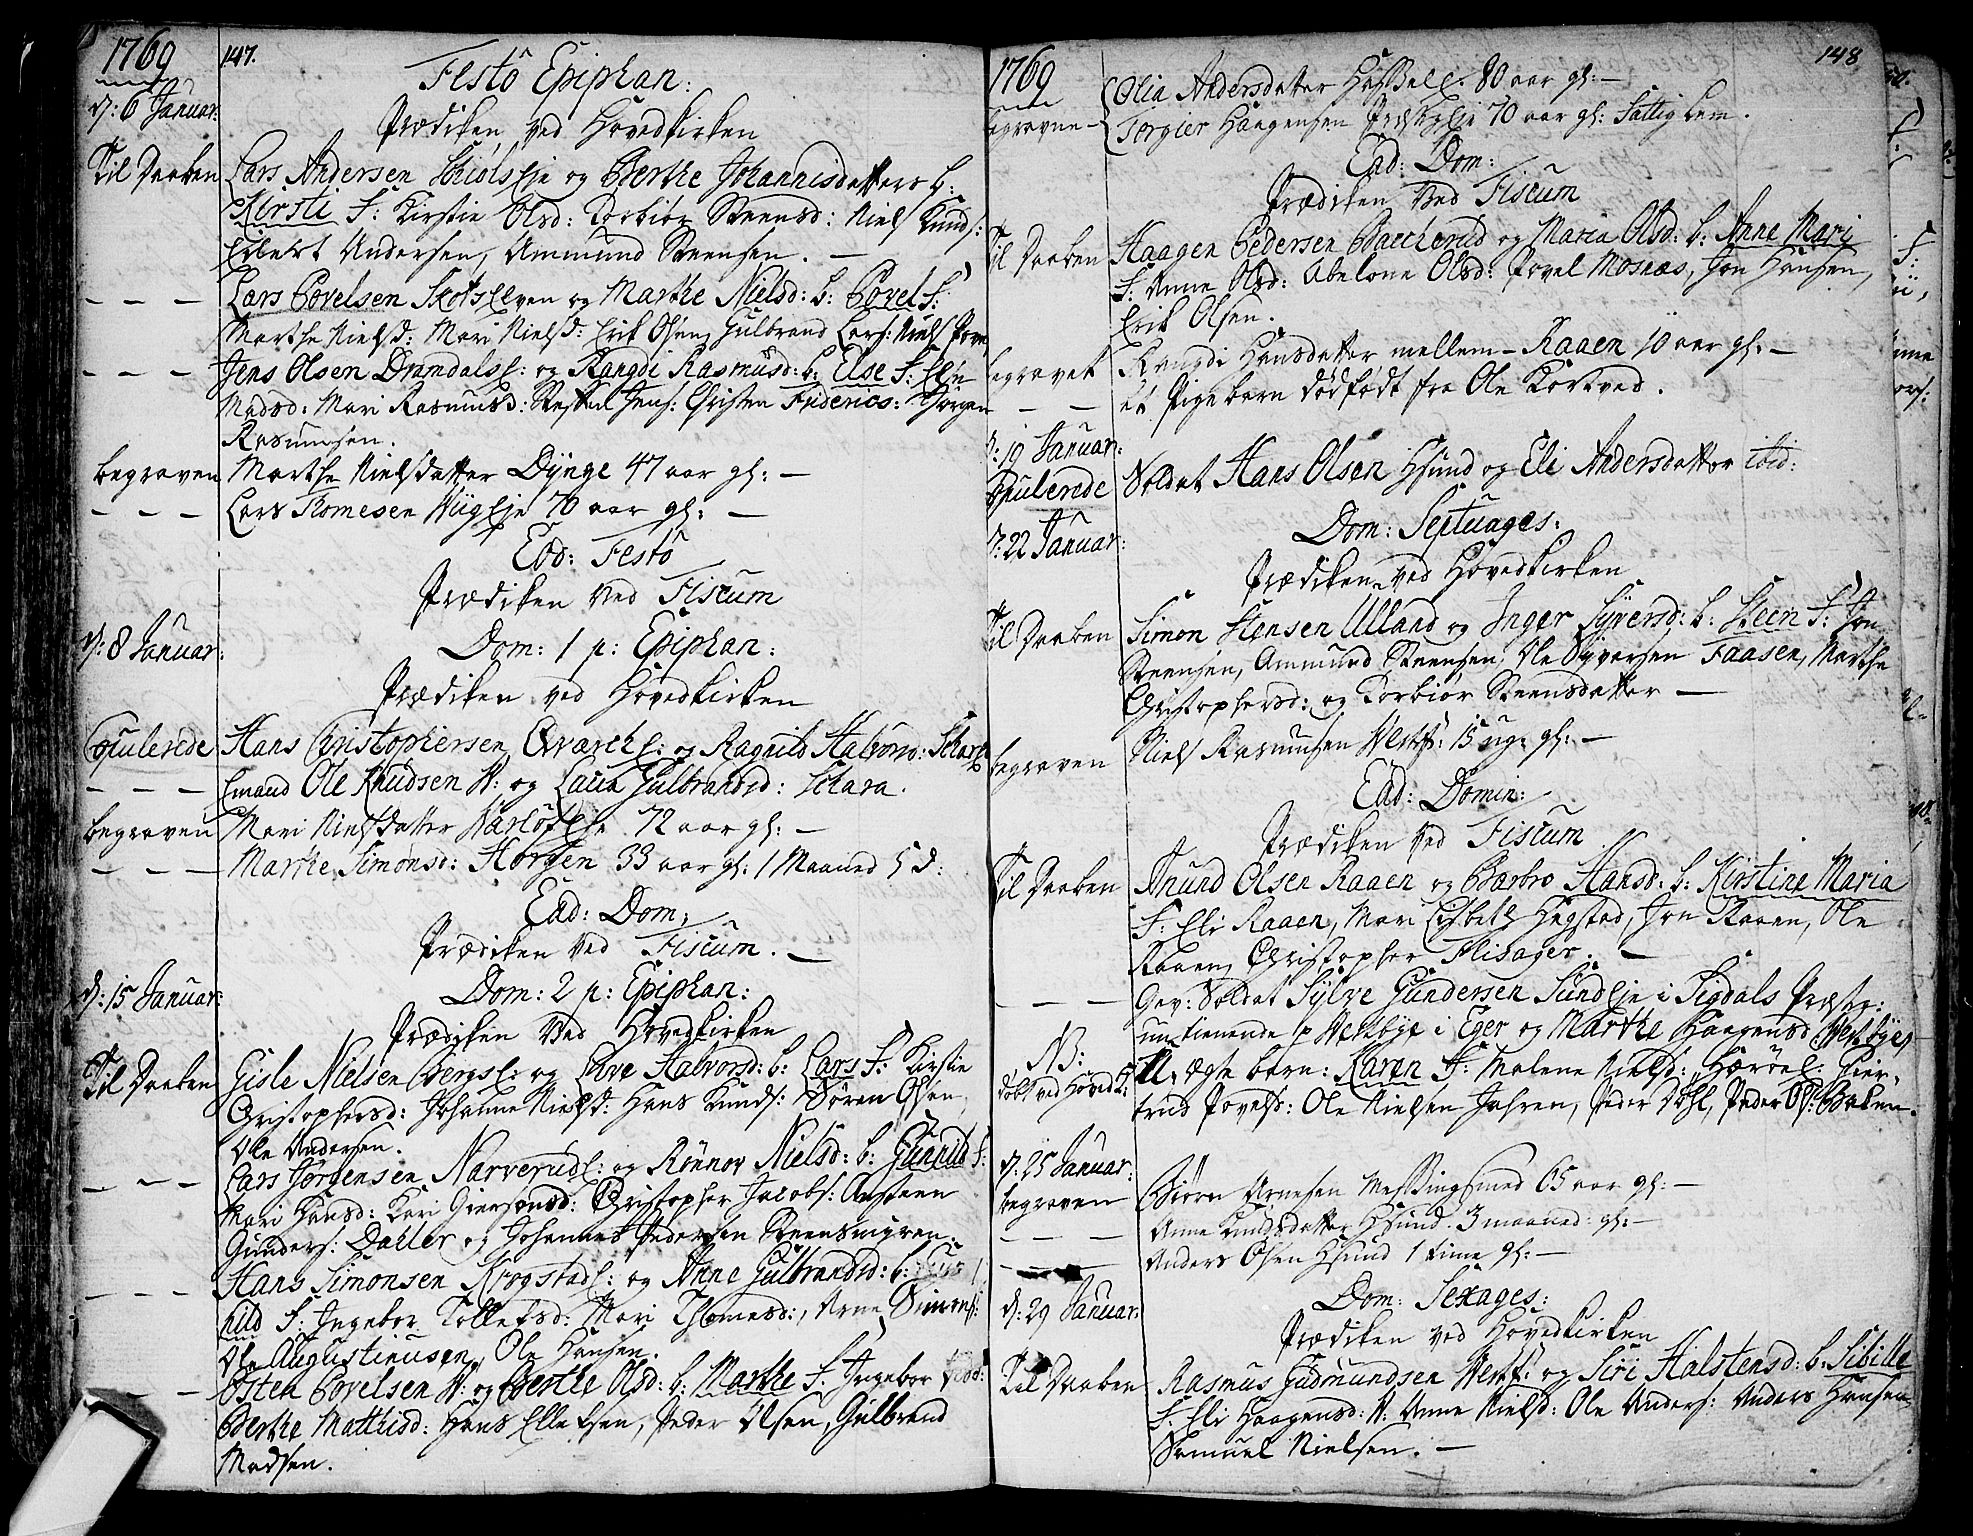 1769 147.
Festô Epiphan:
d: 6 Januar:
Prædiken ved Hovedkirken
Til Daaben Lars Andersen Schiølseje og Berthe Johannisdatters b:
Kirsti F: Kirstie Olsd: Torbiør Steensd: Niels Knuds:
Elbert Andersen, Ammund Steensen. —
— — — Lars Povelsen Skotselven og Marthe Nielsd: b: Povel F:
Marthe Nielsd: Mari Nielsd: Erik Olsen, Gulbrand Lars: Niels Povels:
— — — Jens Olsen Dramdalse: og Rangdi Rasmusd: b: Else F: Else
Madsd: Mari Rasmusd: Steffen Jens: Christen Friderics: Jørgen
Rasmusen.
begraven Marthe Nielsdatter Dÿnge 47 aar gl: —
— — — Lars Thomesen Wiigeje 70 aar gl: —
Eod: Festô
Prædiken ved Fiscum
d: 8 Januar: Dom: 1 p: Epiphan:
Prædiken ved Hovedkirken
Copulerede Hans Christophersen Qværke: og Ragnild Halvorsd:
— — — Enmand Ole Knudsen W: og Laura Gulbrandsd: Schara.
begraven Mari Nielsdatter Varløseje 72 aar gl: —
— — — Marthe Simonsd: Horgen 33 aar gl: 1 Maaned 5 d:
Ead: Dom:
Prædiken ved Fiscum. —
d: 15 Januar: Dom: 2 p: Epiphan:
Prædiken ved Hovedkirken
Til Daaben Gisle Nielsen Bergse: og Live Halvorsd: b: Lars F: Kirstie
Christophersd: Johanne Nielsd: Hans Knuds: Søren Olsen,
Ole Andersen.
— — — Lars Jørgensen Narverude: og Rønnov Nielsd: b: Gunnild F:
Mari Hansd: Kari Giersonsd: Christopher Jacobs: Austeen
Gunders: Dahler og Johannes Pedersen Steensmyren.
— — — Hans Simonsen Krogstade: og Anne Gulbrandsd: b:
hild F: Ingebor Tollefsd: Mari Thomesd:, Arne Simons:
Ole Augustinusen, Ole Hansen.
— — — Østen Povelsen W: og Berthe Olsd: b: Marthe F: Ingebor
Berthe Matthisd: Hans Ellefsen, Peder Olsen, Gulbrand
Madsen.
1769 148
begravne — Olia Andersdatter Hassele. 80 aar gl: —
Torgier Haagensen Præsteeje 70 aar gl: Fattig Lem.
Ead: Dom:
Prædiken ved Fiscum
Til Daaben Haagen Pedersen Baccherud og Maria Olsd: b: Anne Mari
F: Anne Olsd: Abelone Olsd: Povel Mosnæs, Jon Hansen,
Erik Olsen.
begravet Rangdi Hansdatter mellem-Raaen 10 aar gl: —
— — et Pigebarn dødfødt fra Ole Kortved.
d: 19 Januar:
Copulerede Soldat Hans Olsen Hsund og Eli Andersdatter ibid:
d: 22 Januar: Dom: Septuages:
Prædiken ved Hovedkirken
Til Daaben Simon Stensen Ulland og Inger Syversd: b: Steen F: Jon
Steensen, Ammund Steensen, Ole Syversen Faasen, Marthe
Christophersd: og Torbiør Steensdatter —
begraven Niels Rasmusen Westf: 15 ug: gl: —
Ead: Domin:
Prædiken ved Fiscum
Til Daaben Anund Olsen Raaen og Barbro Hansd: b: Kirstine Maria
F: Eli Raaen, Mari Lisbeth Hegstad, Jon Raaen, Ole
Raaen, Christopher Flisager. —
— — — Gev: Soldat Sylve Gundersen Sundeje i Sigdals Præsteg:
nu tienende p Westbye i Eger og Marthe Haagensd: Westbyes
NB: U, ægte barn: Karen F: Malene Nielsd: Hærøe: Pier,
døbt ved Hoved K: trus Povels: Ole Nielsen Jahren, Peder Dahl, Peder Ols: Baken.
d: 25 Januar:
begraven Biørn Arnesen Messingsmed 65 aar gl: —
— — — Anne Knudsdatter Hsund. 3 maaned: gl: —
Anders Olsen Hsund 1 time gl: —
d: 29 Januar: Dom: Sexages:
Prædiken ved Hovedkirken
Til Daaben Rasmus Gudmundsen Westf: og Siri Halstensd: b: Sibille
F: Eli Haagensd: W: Anne Nielsd: Ole Anders: Anders Hansen,
Samuel Nielsen. —